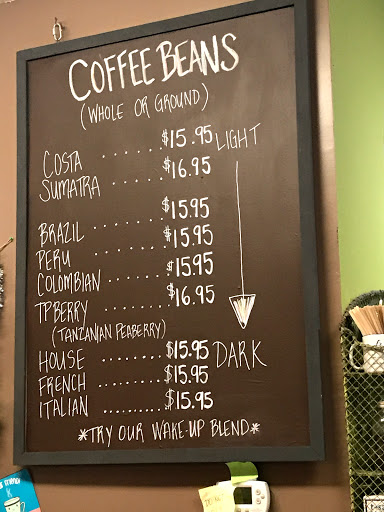 COFFEE BEANS
(WHOLE OR GROUND)
COSTA ...... $15.95 LIGHT
SUMATRA ...... $16.95
BRAZIL ........ $15.95
PERU .......... $15.95
COLOMBIAN ...... $15.95
TPBERRY ........ $16.95
(TANZANIAN PEABERRY)
HOUSE ......... $15.95 DARK
FRENCH ........ $15.95
ITALIAN .......... $15.95
*TRY OUR WAKE-UP BLEND*